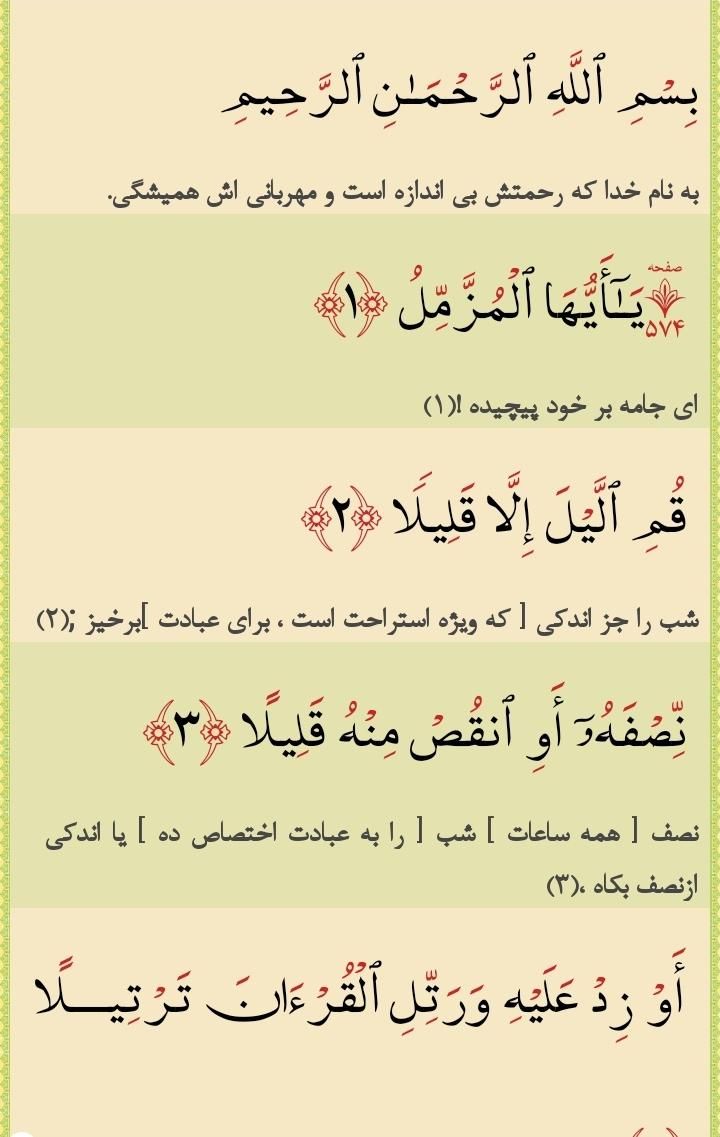 بِسْمِ ٱللَّهِ ٱلرَّحْمَـٰنِ ٱلرَّحِيمِ
به نام خدا که رحمتش بی اندازه است و مهربانی اش همیشگی.
صفحه
۵۷۴
يَـٰٓأَيُّهَا ٱلْمُزَّمِّلُ ﴿۱﴾
ای جامه بر خود پیچیده !(۱)
قُمِ ٱلَّيْلَ إِلَّا قَلِيلًا ﴿۲﴾
شب را جز اندکی [ که ویژه استراحت است ، برای عبادت ]برخیز ;(۲)
نِّصْفَهُۥٓ أَوِ ٱنقُصْ مِنْهُ قَلِيلًا ﴿۳﴾
نصف [ همه ساعات ] شب [ را به عبادت اختصاص ده ] یا اندکی
ازنصف بکاه ،(۳)
أَوْ زِدْ عَلَيْهِ وَرَتِّلِ ٱلْقُرْءَانَ تَرْتِيـــلًا